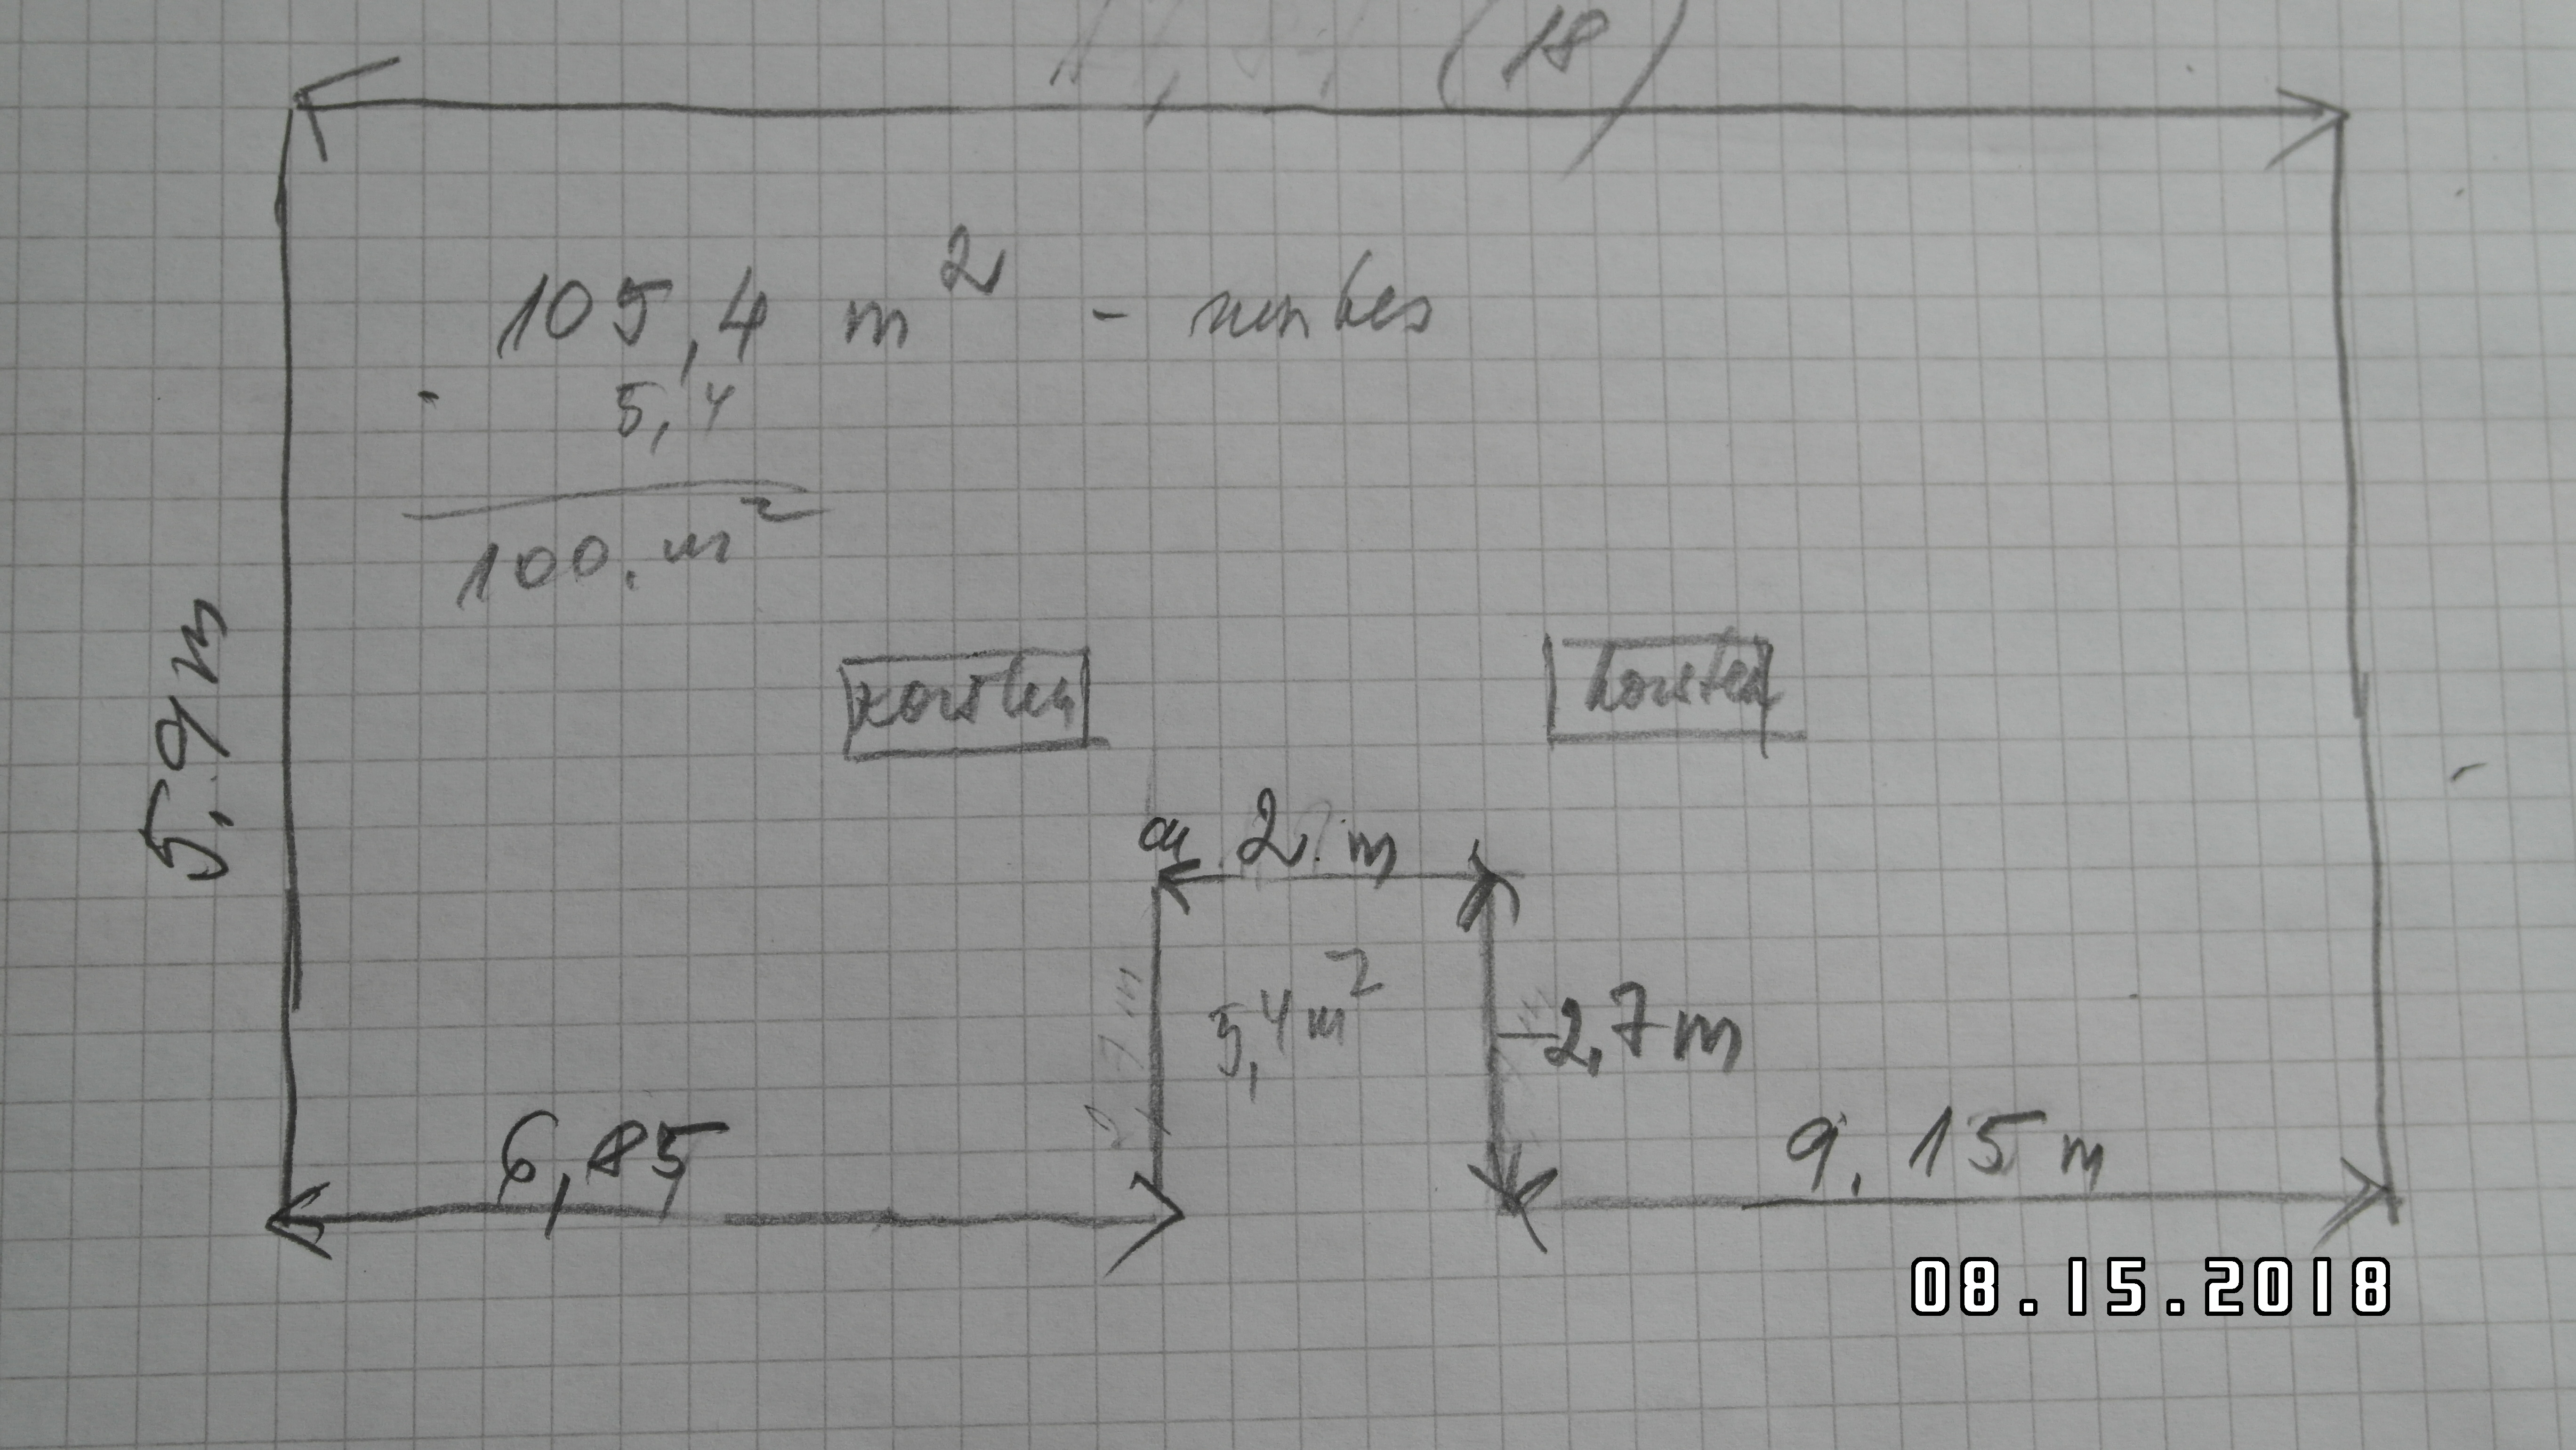 (18)
105,4 m² -
- 5,4
100. m²
5,9 m
korsten
korsten
ca. 2 m
5,4 m²
2,7 m
6,85
9,15 m
08.15.2018